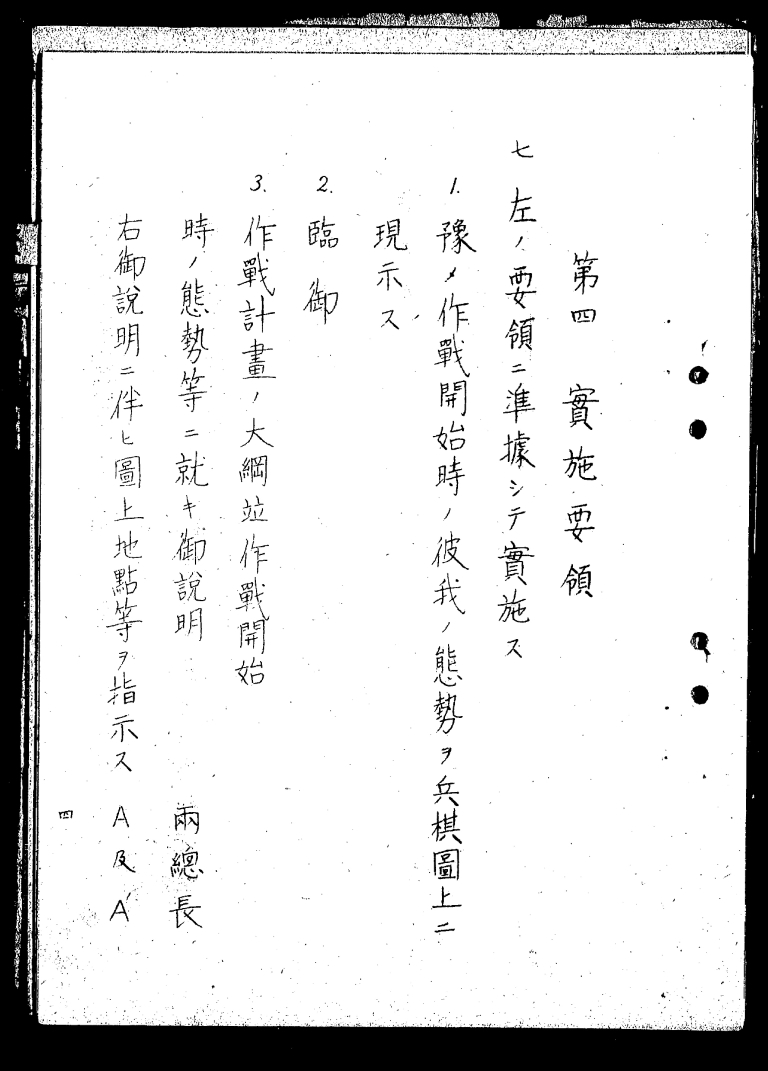 第四　實施要領
七　左ノ要領ニ準據シテ實施ス
1. 豫メ作戰開始時ノ彼我ノ態勢ヲ兵棋圖上ニ
現示ス
2. 臨御
3. 作戰計畫ノ大綱竝作戰開始
時ノ態勢等ニ就キ御說明　兩總長
右御說明ニ伴ヒ圖上地點等ヲ指示ス　A及A′
四